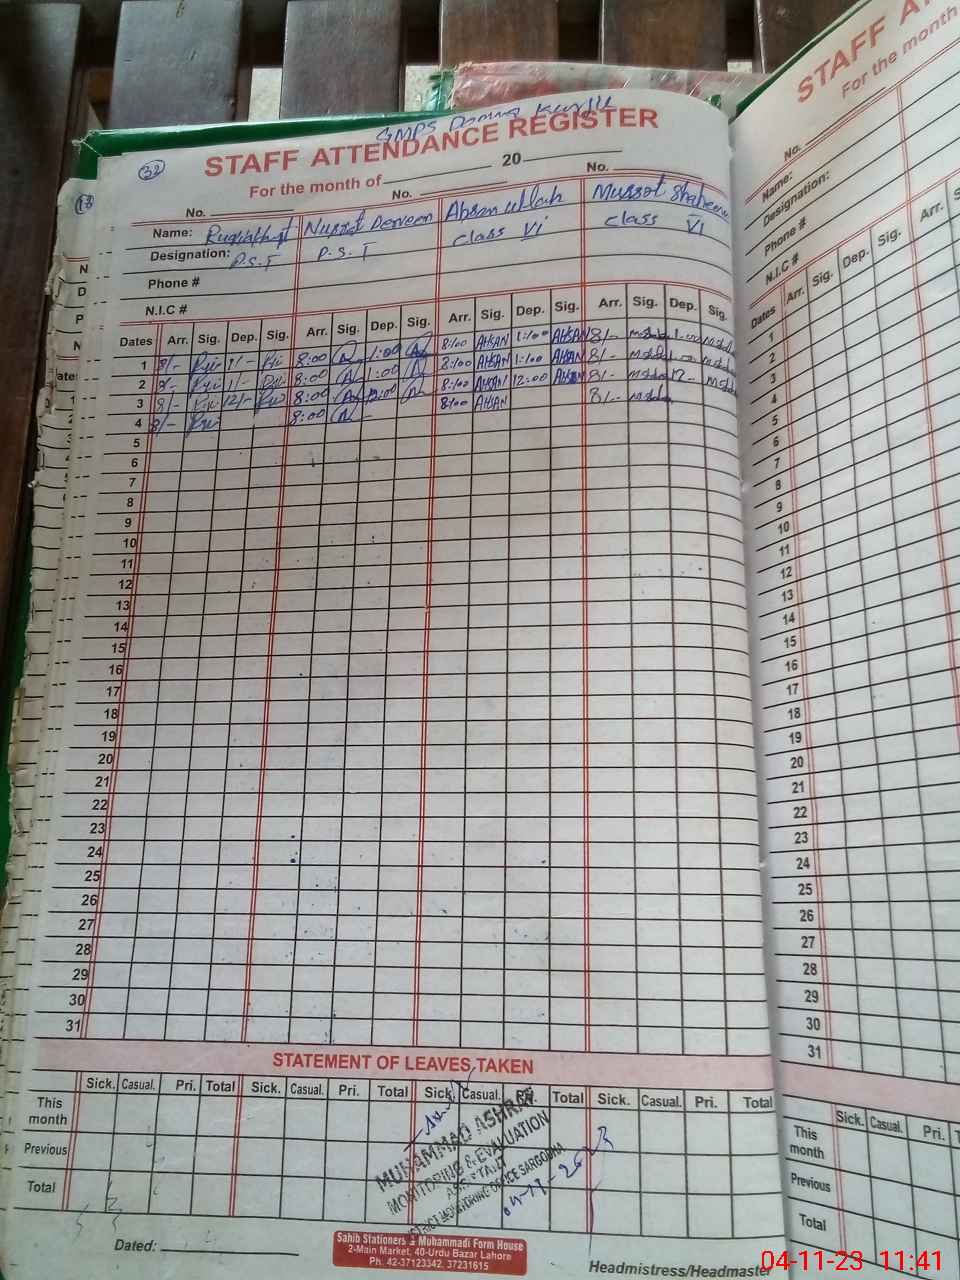 GMPS
32
STAFF ATTENDANCE REGISTER
For the month of 20
No. No. No.
Name: Nusrat Perveen Ahsan ullah Mussat Shaheen
Designation: P.S.T P.S.T class VI class VI
Phone #
N.I.C #
Dates Arr. Sig. Dep. Sig. Arr. Sig. Dep. Sig. Arr. Sig. Dep. Sig. Arr. Sig. Dep. Sig.
1 8/- 1/- 8:00 1:00 8:00 AHSAN 1:00 AHSAN 8/-
2 8/- 1/- 8:00 1:00 8:00 AHSAN 1:00 AHSAN 8/-
3 8/- 12/- 8:00 12:00 8:00 AHSAN 12:00 AHSAN 8/- 12-
4 8/- 8:00 8:00 AHSAN 8/-
5
6
7
8
9
10
11
12
13
14
15
16
17
18
19
20
21
22
23
24
25
26
27
28
29
30
31
STATEMENT OF LEAVES TAKEN
Sick. Casual. Pri. Total Sick. Casual. Pri. Total Sick. Casual. Pri. Total Sick. Casual. Pri. Total
This month
Previous
Total
MUHAMMAD ASHRAF
MONITORING & EVALUATION
ASSISTANT
DISTRICT MONITORING OFFICE SARGODHA
04-11-2023
Dated:
Sahib Stationers & Muhammadi Form House
2-Main Market, 40-Urdu Bazar Lahore
Ph. 42-37123342, 37231615
Headmistress/Headmaster
STAFF
For the month
No.
Name:
Designation:
Phone #
N.I.C #
Dates Arr. Sig. Dep. Sig. Arr.
1
2
3
4
5
6
7
8
9
10
11
12
13
14
15
16
17
18
19
20
21
22
23
24
25
26
27
28
29
30
31
Sick. Casual. Pri.
This month
Previous
Total
04-11-23 11:41